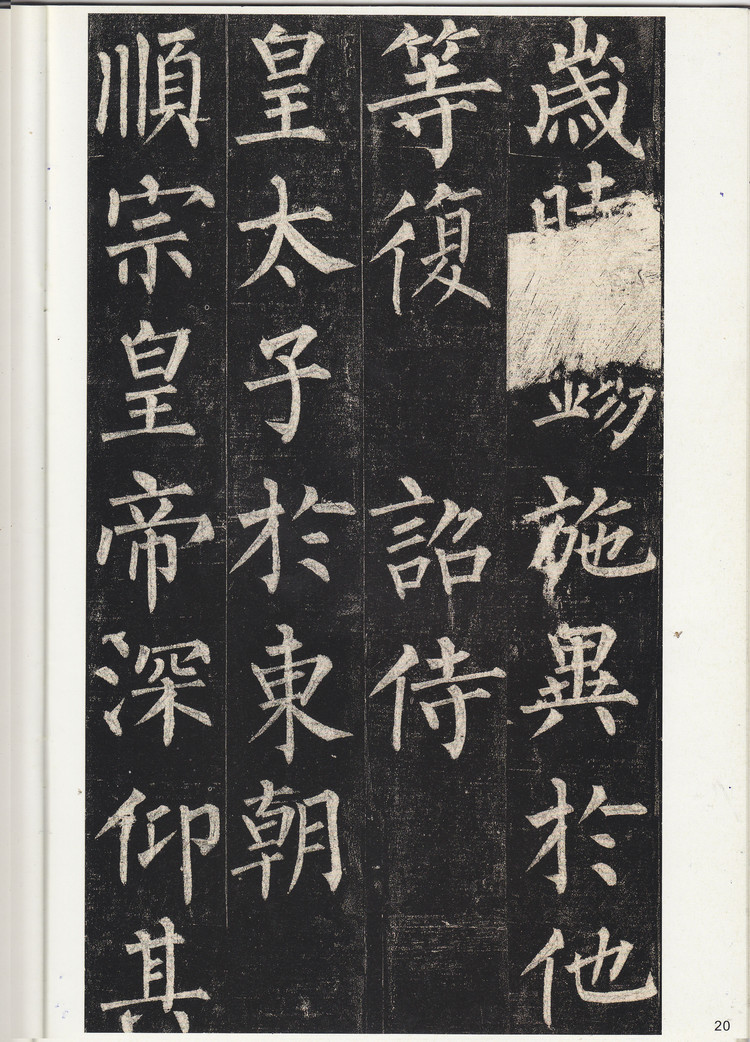 歲時施異於他
等復 詔侍
皇太子於東朝
順宗皇帝深仰其
20